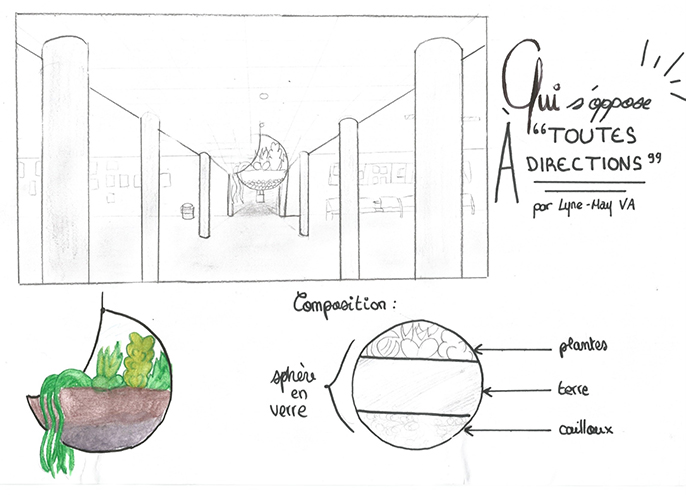 Qui s'oppose
À “TOUTES
DIRECTIONS”
par Lyne-May VA
Composition :
sphère
en
verre
plantes
terre
cailloux